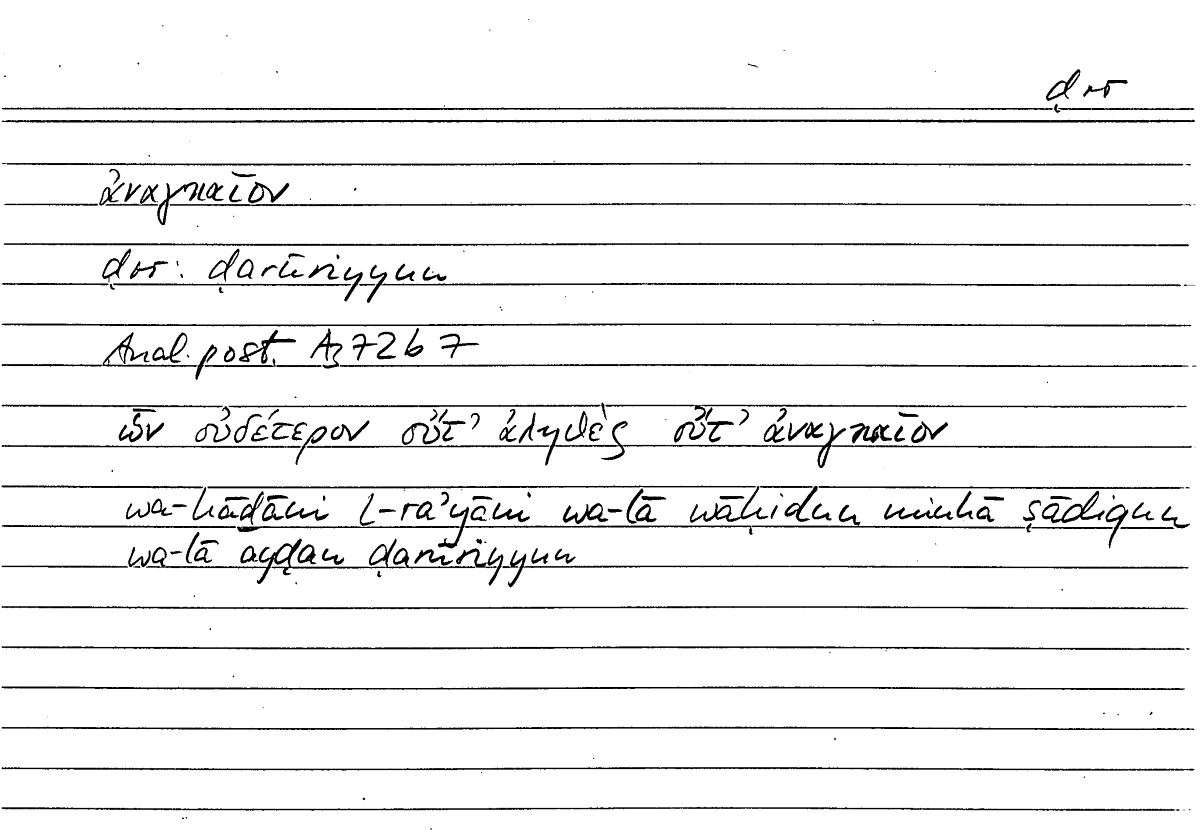 ḍrr
ἀναγκαῖον
ḍrr: ḍarūriyyun
Anal. post. A3 72b 7
ὧν οὐδέτερον οὔτ᾽ ἀληθὲς οὔτ᾽ ἀναγκαῖον
wa-hāḏāni l-ra᾽yāni wa-lā wāḥidun minhā ṣādiqun
wa-lā ayḍan ḍarūriyyun